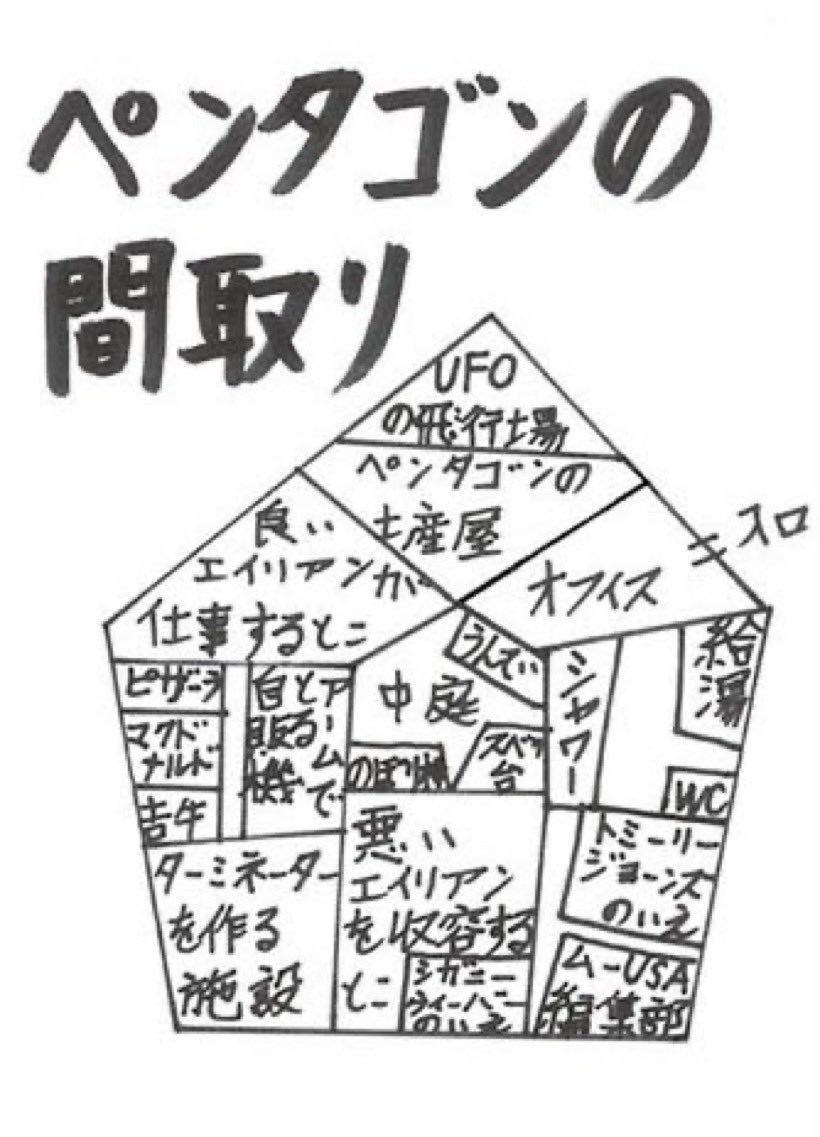 ペンタゴンの
間取り
UFO
の飛行場
ペンタゴンの
土産屋
オフィス
ニスロ
良い
エイリアンが
仕事するとこ
ピザーラ
マクド
ナルド
吉牛
アームで
とる
自販機
中庭
うんてい
のぼり棒
スベリ
台
シャワー
給
湯
WC
トミーリー
ジョーンズ
のいえ
ムーUSA
編集部
ターミネーター
を作る
施設
悪い
エイリアン
を収容する
とこ
シガニー
ウィーバー
のいえ